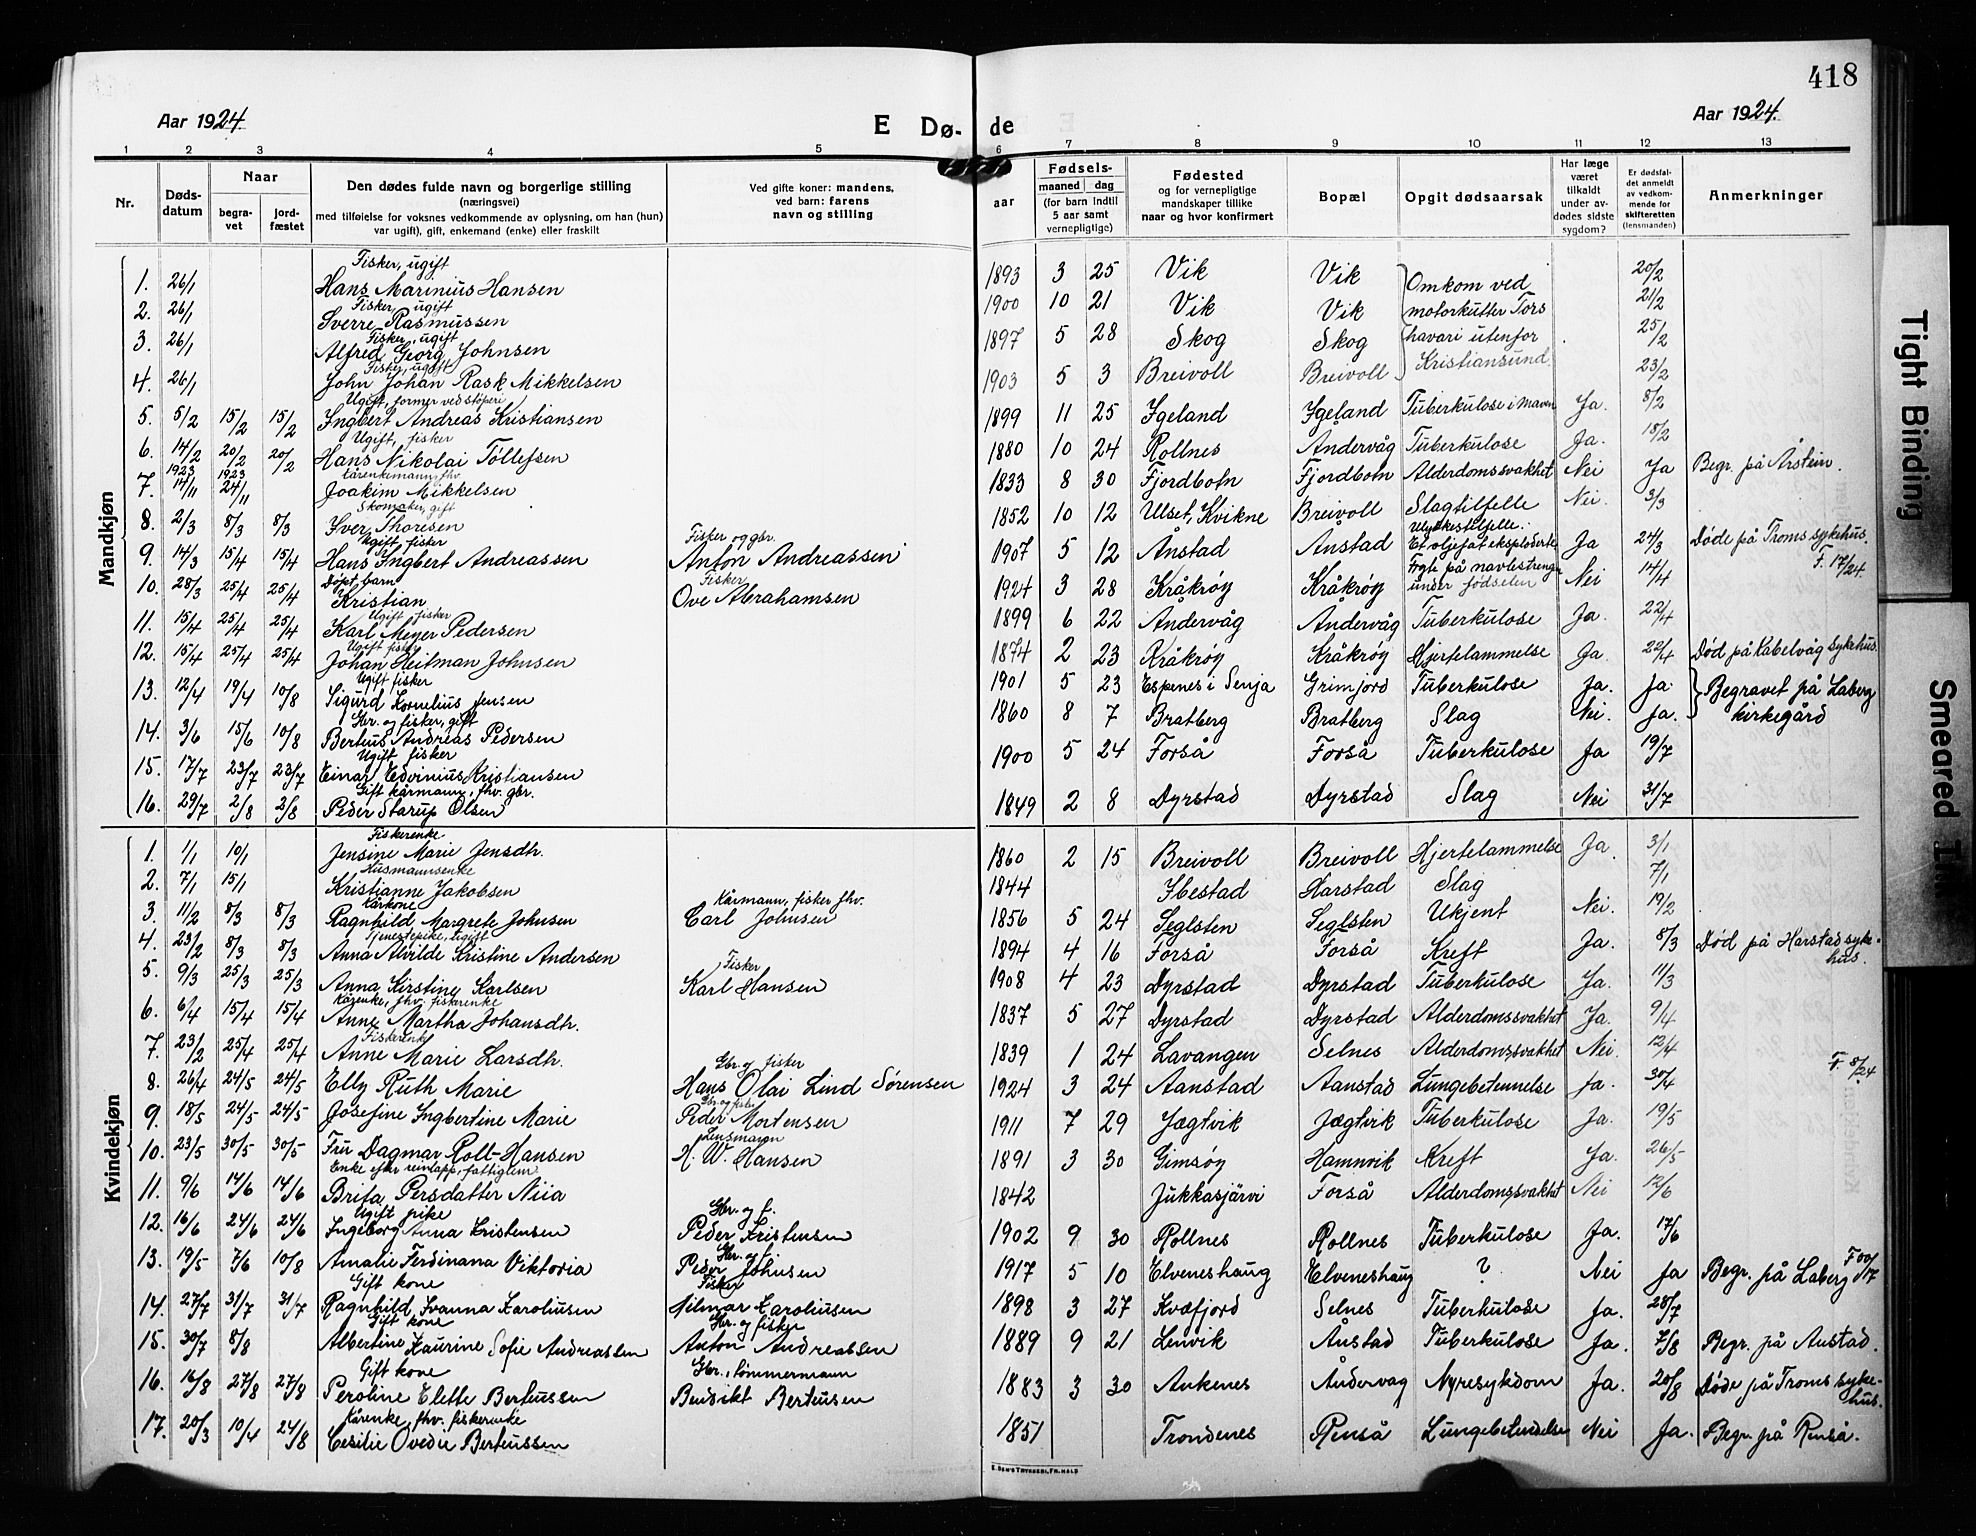 418
Aar 1924.
E Dø- de
Aar 1924.
1 2 3 4 5 6 7 8 9 10 11 12 13
Nr.
Døds-
datum
Naar
begra-
vet
jord-
fæstet
Den dødes fulde navn og borgerlige stilling
(næringsvei)
med tilføielse for voksnes vedkommende av oplysning, om han (hun)
var ugift), gift, enkemand (enke) eller fraskilt
Ved gifte koner: mandens,
ved barn: farens
navn og stilling
aar
Fødsels-
maaned dag
(for barn indtil
5 aar samt
vernepligtige)
Fødested
og for vernepligtige
mandskaper tillike
naar og hvor konfirmert
Bopæl
Opgit dødsaarsak
Har læge
været
tilkaldt
under av-
dødes sidste
sygdom?
Er dødsfal-
det anmeldt
av vedkom-
mende for
skifteretten
(lensmanden)
Anmerkninger
Mandkjøn
Fisker, ugift
1. 26/1 Hans Marinius Hansen 1893 3 25 Vik Vik Omkom ved 20/2
Fisker, ugift
2. 26/1 Sverre Rasmussen 1900 10 21 Vik Vik motorkutter Tors 21/2
Fisker, ugift
3. 26/1 Alfred Georg Johnsen 1897 5 28 Skog Skog havari utenfor 25/2
Fisker, ugift
4. 26/1 John Johan Rask Mikkelsen 1903 5 3 Breivoll Breivoll Kristiansund. 23/2
Ugift, former ved støperi
5. 5/2 15/2 15/2 Ingbert Andreas Kristiansen 1899 11 25 Igeland Igeland Tuberkulose i maven Ja. 8/2
Ugift, fisker
6. 14/2 20/2 20/2 Hans Nikolai Tollefsen 1880 10 24 Rollnes Andervåg Tuberkulose Ja. 18/2
1923 1923 Kårenkemann, fhv.
7. 14/11 24/11 Joakim Mikkelsen 1833 8 30 Fjordbotn Fjordbotn Alderdomssvakhet Nei Ja Begr. på Årstein.
Skomaker, gift
8. 2/3 8/3 8/3 Iver Thoresen 1852 10 12 Ulset, Kvikne Breivoll Slagtilfelle Nei. 3/3
Ugift fisker Fisker og gbr. Ulykkestilfelle.
9. 14/3 15/4 15/4 Hans Ingbert Andreassen Anton Andreassen 1907 5 12 Anstad Anstad Et oljefat eksploderte Ja 24/3 Døde på Troms sykehus.
Døpt barn Fisker F. 17/24.
10. 28/3 25/4 25/4 Kristian Ove Abrahamsen 1924 3 28 Kråkrøy Kråkrøy på navlestrengen under fødselen Nei 14/4
Ugift fisker
11. 15/4 25/4 25/4 Karl Meyer Pedersen 1899 6 22 Andervåg Andervåg Tuberkulose Ja. 22/4
Ugift fisker
12. 15/4 25/4 25/4 Johan Heitman Johnsen 1874 2 23 Kråkrøy Kråkrøy Hjertelammelse Ja. 22/4 Død på Kabelvåg sykehus.
Ugift fisker
13. 12/4 19/4 10/8 Sigurd Kornelius Jensen 1901 5 23 Espenes i Senja Grimjord Tuberkulose Ja. Ja. Begravet på Laberg
Gbr. og fisker, gift
14. 3/6 15/6 10/8 Berteus Andreas Pedersen 1860 8 7 Bratberg Bratberg Slag Nei. Ja. kirkegård
Ugift fisker
15. 17/7 23/7 23/7 Einar Edvinius Kristiansen 1900 5 24 Forså Forså Tuberkulose Ja 19/7
Gift kårmann, fhv. gbr.
16. 29/7 2/8 2/8 Peder Starup Olsen 1849 2 8 Dyrstad Dyrstad Slag Nei 31/7
Kvindekjøn
Fiskerenke
1. 1/1 10/1 Jensine Marie Jensdtr. 1860 2 15 Breivoll Breivoll Hjertelammelse Ja. 3/1
Husmannsenke
2. 7/1 15/1 Kristianne Jakobsen 1844 Ibestad Harstad Slag 7/1
Kårkone Kårmann, fisker fhv.
3. 11/2 8/3 8/3 Ragnhild Margrete Johnsen Carl Johnsen 1856 5 24 Seglsten Seglsten Ukjent Nei. 19/2
Tjenestepike, ugift
4. 23/2 8/3 8/3 Anna Alvilde Kristine Andersen 1894 4 16 Forså Forså Kreft Ja. 8/3 Død på Harstad syke-
hus.
Fisker
5. 9/3 25/3 25/3 Anna Kirstine Karlsen Karl Hansen 1908 4 23 Dyrstad Dyrstad Tuberkulose Ja. 11/3
Kårenke, fhv. fiskerenke
6. 6/4 15/4 15/4 Anne Martha Johansdtr. 1837 5 27 Dyrstad Dyrstad Alderdomssvakhet Ja. 9/4
Fiskerenke
7. 23/2 25/4 25/4 Anne Marie Larsdtr. 1839 1 24 Lavangen Selnes Alderdomssvakhet Nei. 12/4
Gbr. og fisker F. 8/24
8. 26/4 24/5 24/5 Elly Ruth Marie Hans Olai Lind Sørensen 1924 3 24 Aanstad Aanstad Lungebetennelse Ja. 30/4
Gbr. og fisker
9. 18/5 24/5 24/5 Josefine Ingbertine Marie Peder Mortensen 1911 7 29 Jægtvik Jægtvik Tuberkulose Ja. 19/5
Lensmann
10. 23/5 30/5 30/5 Fru Dagmar Roll-Hansen H. W. Hansen 1891 3 30 Gimsøy Hamnvik Kreft Ja. 26/5
Enke efter reinlapp, fattiglem
11. 9/6 14/6 14/6 Brita Persdatter Niia 1842 Jukkasjärvi Forså Alderdomssvakhet Nei 12/6
Ugift pike Gbr. og f.
12. 16/6 24/6 24/6 Ingeborg Anna Kristensen Peder Kristensen 1902 9 30 Rollnes Rollnes Tuberkulose Ja. 17/6
Gbr. og f.
13. 19/5 7/6 10/8 Amalie Ferdinana Viktoria Peder Johnsen 1917 5 10 Elveneshaug Elveneshaug ? Nei Ja Begr. på Laberg
Gift kone Fisker
14. 27/7 31/7 31/7 Ragnhild Ivanna Karoliusen Hilmar Karoliusen 1898 3 27 Kvæfjord Selnes Tuberkulose Ja. 28/7
Gift kone Gbr. og fisker
15. 30/7 8/8 Albertine Laurine Sofie Andreassen Anton Andreassen 1889 9 21 Lenvik Ånstad Tuberkulose Ja. 7/8 Begr. på Anstad.
Gift kone Gbr. tømmermann
16. 16/8 27/8 27/8 Peroline Elette Berteussen Bendikt Berteusen 1883 3 30 Ankenes Åndervag Nyresykdom Ja. 20/8 Døde på Troms syke-
hus.
Kårenke, fhv. fiskerenke
17. 20/3 10/4 24/8 Cesilie Ovedie Berteussen 1851 Trondenes Renså Lungebetendelse Nei Ja. Begr. på Renså.
E. SEM'S TRYKKERI, FR.HALD
Tight Binding
Smeared